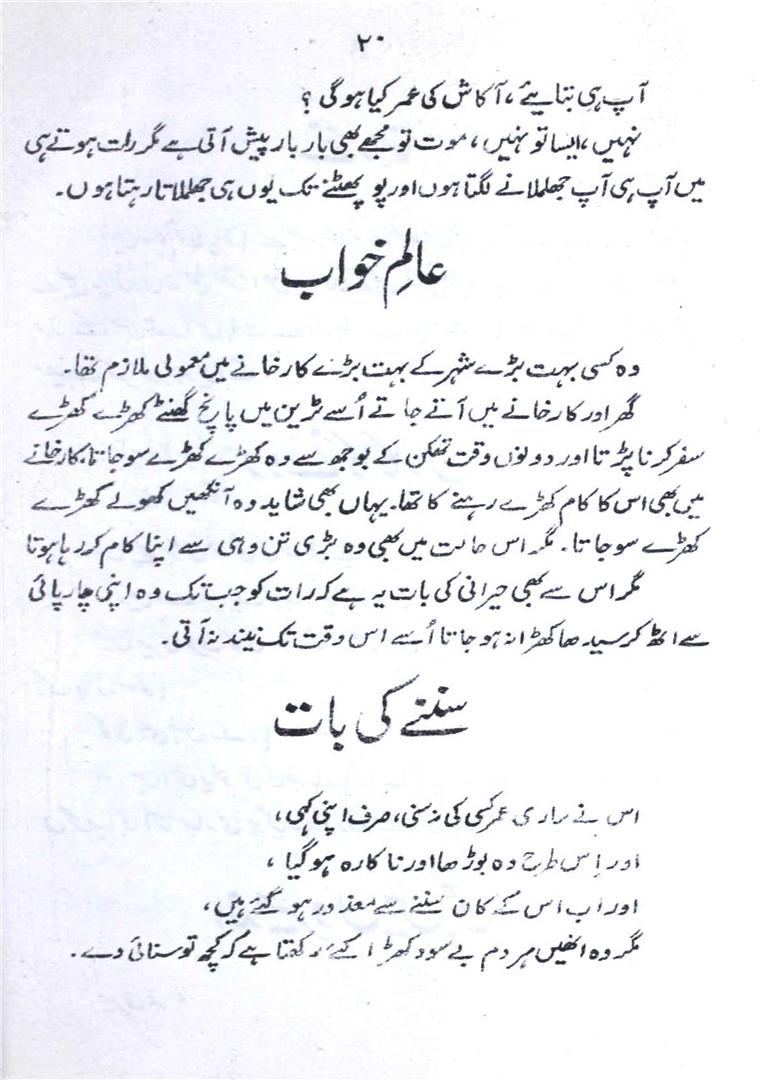 ۲۰
آپ ہی بتایئے، آکاش کی عمر کیا ہوگی؟
نہیں، ایسا تو نہیں، موت تو مجھے بھی بار بار پیش آتی ہے مگر رات ہوتے ہی
میں آپ ہی آپ جھلملانے لگتا ہوں اور پو پھٹنے تک یوں ہی جھلملاتا رہتا ہوں۔
عالمِ خواب
وہ کسی بہت بڑے شہر کے بہت بڑے کارخانے میں معمولی ملازم تھا۔
گھر اور کارخانے میں آتے جاتے اُسے ٹرین میں پانچ گھنٹے کھڑے کھڑے
سفر کرنا پڑتا اور دونوں وقت تھکن کے بوجھ سے وہ کھڑے کھڑے سو جاتا۔ کارخانے
میں بھی اس کا کام کھڑے رہنے کا تھا۔ یہاں بھی شاید وہ آنکھیں کھولے کھڑے
کھڑے سو جاتا۔ مگر اس حالت میں بھی وہ بڑی تن دہی سے اپنا کام کر رہا ہوتا
مگر اس سے بھی حیرانی کی بات یہ ہے کہ رات کو جب تک وہ اپنی چارپائی
سے اٹھ کر سیدھا کھڑا نہ ہو جاتا اُسے اس وقت تک نیند نہ آتی۔
سننے کی بات
اس نے ساری عمر کسی کی نہ سنی، صرف اپنی کہی،
اور اِس طرح وہ بوڑھا اور ناکارہ ہوگیا،
اور اب اس کے کان سننے سے معذور ہو گئے ہیں،
مگر وہ انھیں ہر دم بے سود کھڑا کئے رکھتا ہے کہ کچھ تو سنائی دے۔